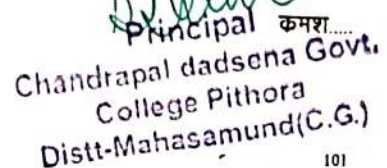 Principal क्रमश.....
Chandrapal dadsena Govt.
College Pithora
Distt-Mahasamund(C.G.)
101